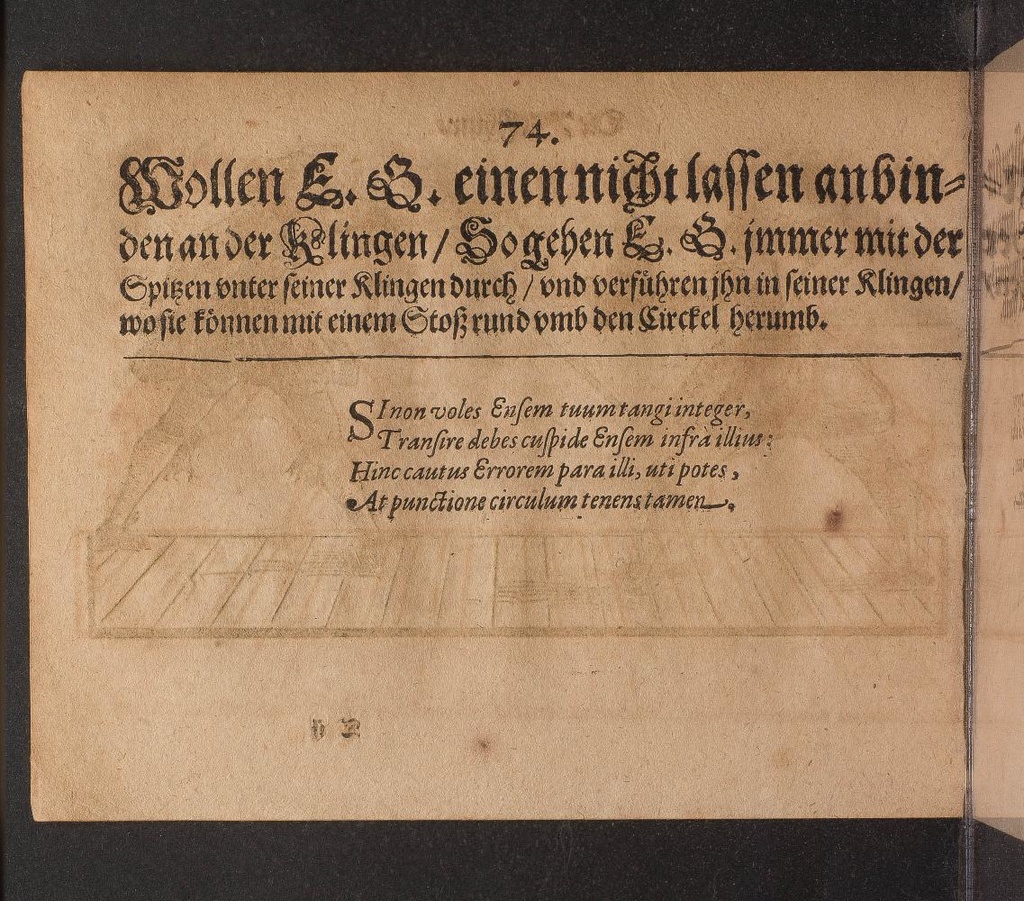 74.
Wollen E. G. einen nicht lassen anbin-
den an der Klingen / So gehen E. G. jmmer mit der
Spitzen vnter seiner Klingen durch / vnd verführen jhn in seiner Klingen /
wo sie können mit einem Stoß rund vmb den Circkel herumb.
SI non voles Ensem tuum tangi integer,
Transire debes cuspide Ensem infrà illius:
Hinc cautus Errorem para illi, uti potes,
At punctione circulum tenens tamen.